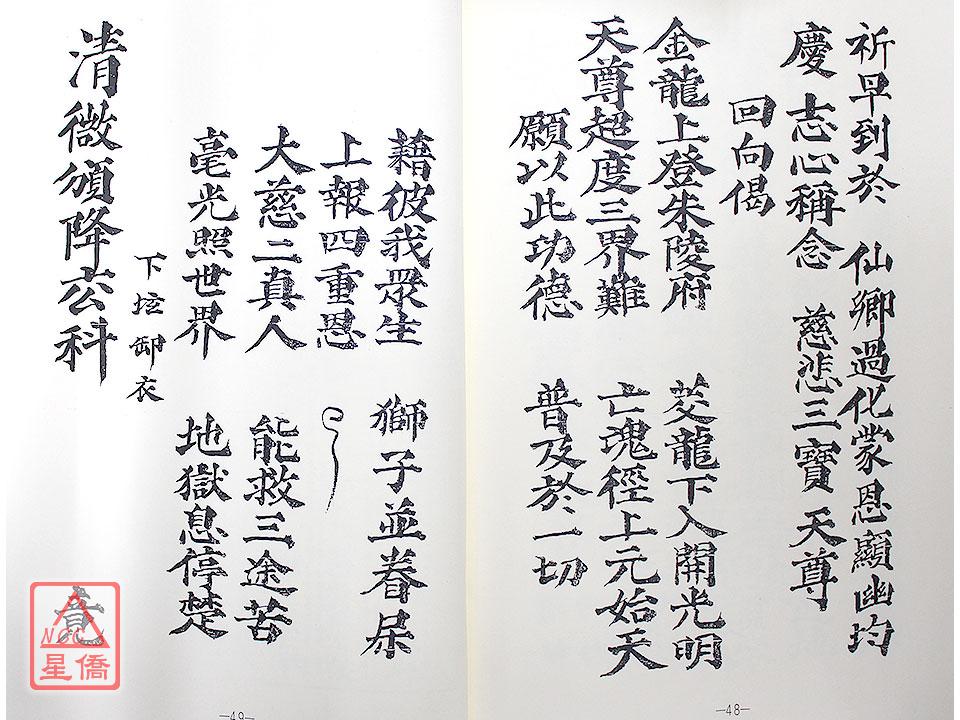 祈早到於　仙鄉過化蒙恩顯幽均
慶　志心稱念　慈悲三寶天尊
回向偈
金龍上登朱陵府　茭龍下入開光明
天尊超度三界難　亡魂徑上元始天
願以此功德　普及於一切
—48—
藉彼我眾生　獅子並眷屬
上報四重恩
大慈二真人　能救三途苦
毫光照世界　地獄息停楚
下坛卸衣
清微頒降玄科
竟
NCC
星僑
—49—